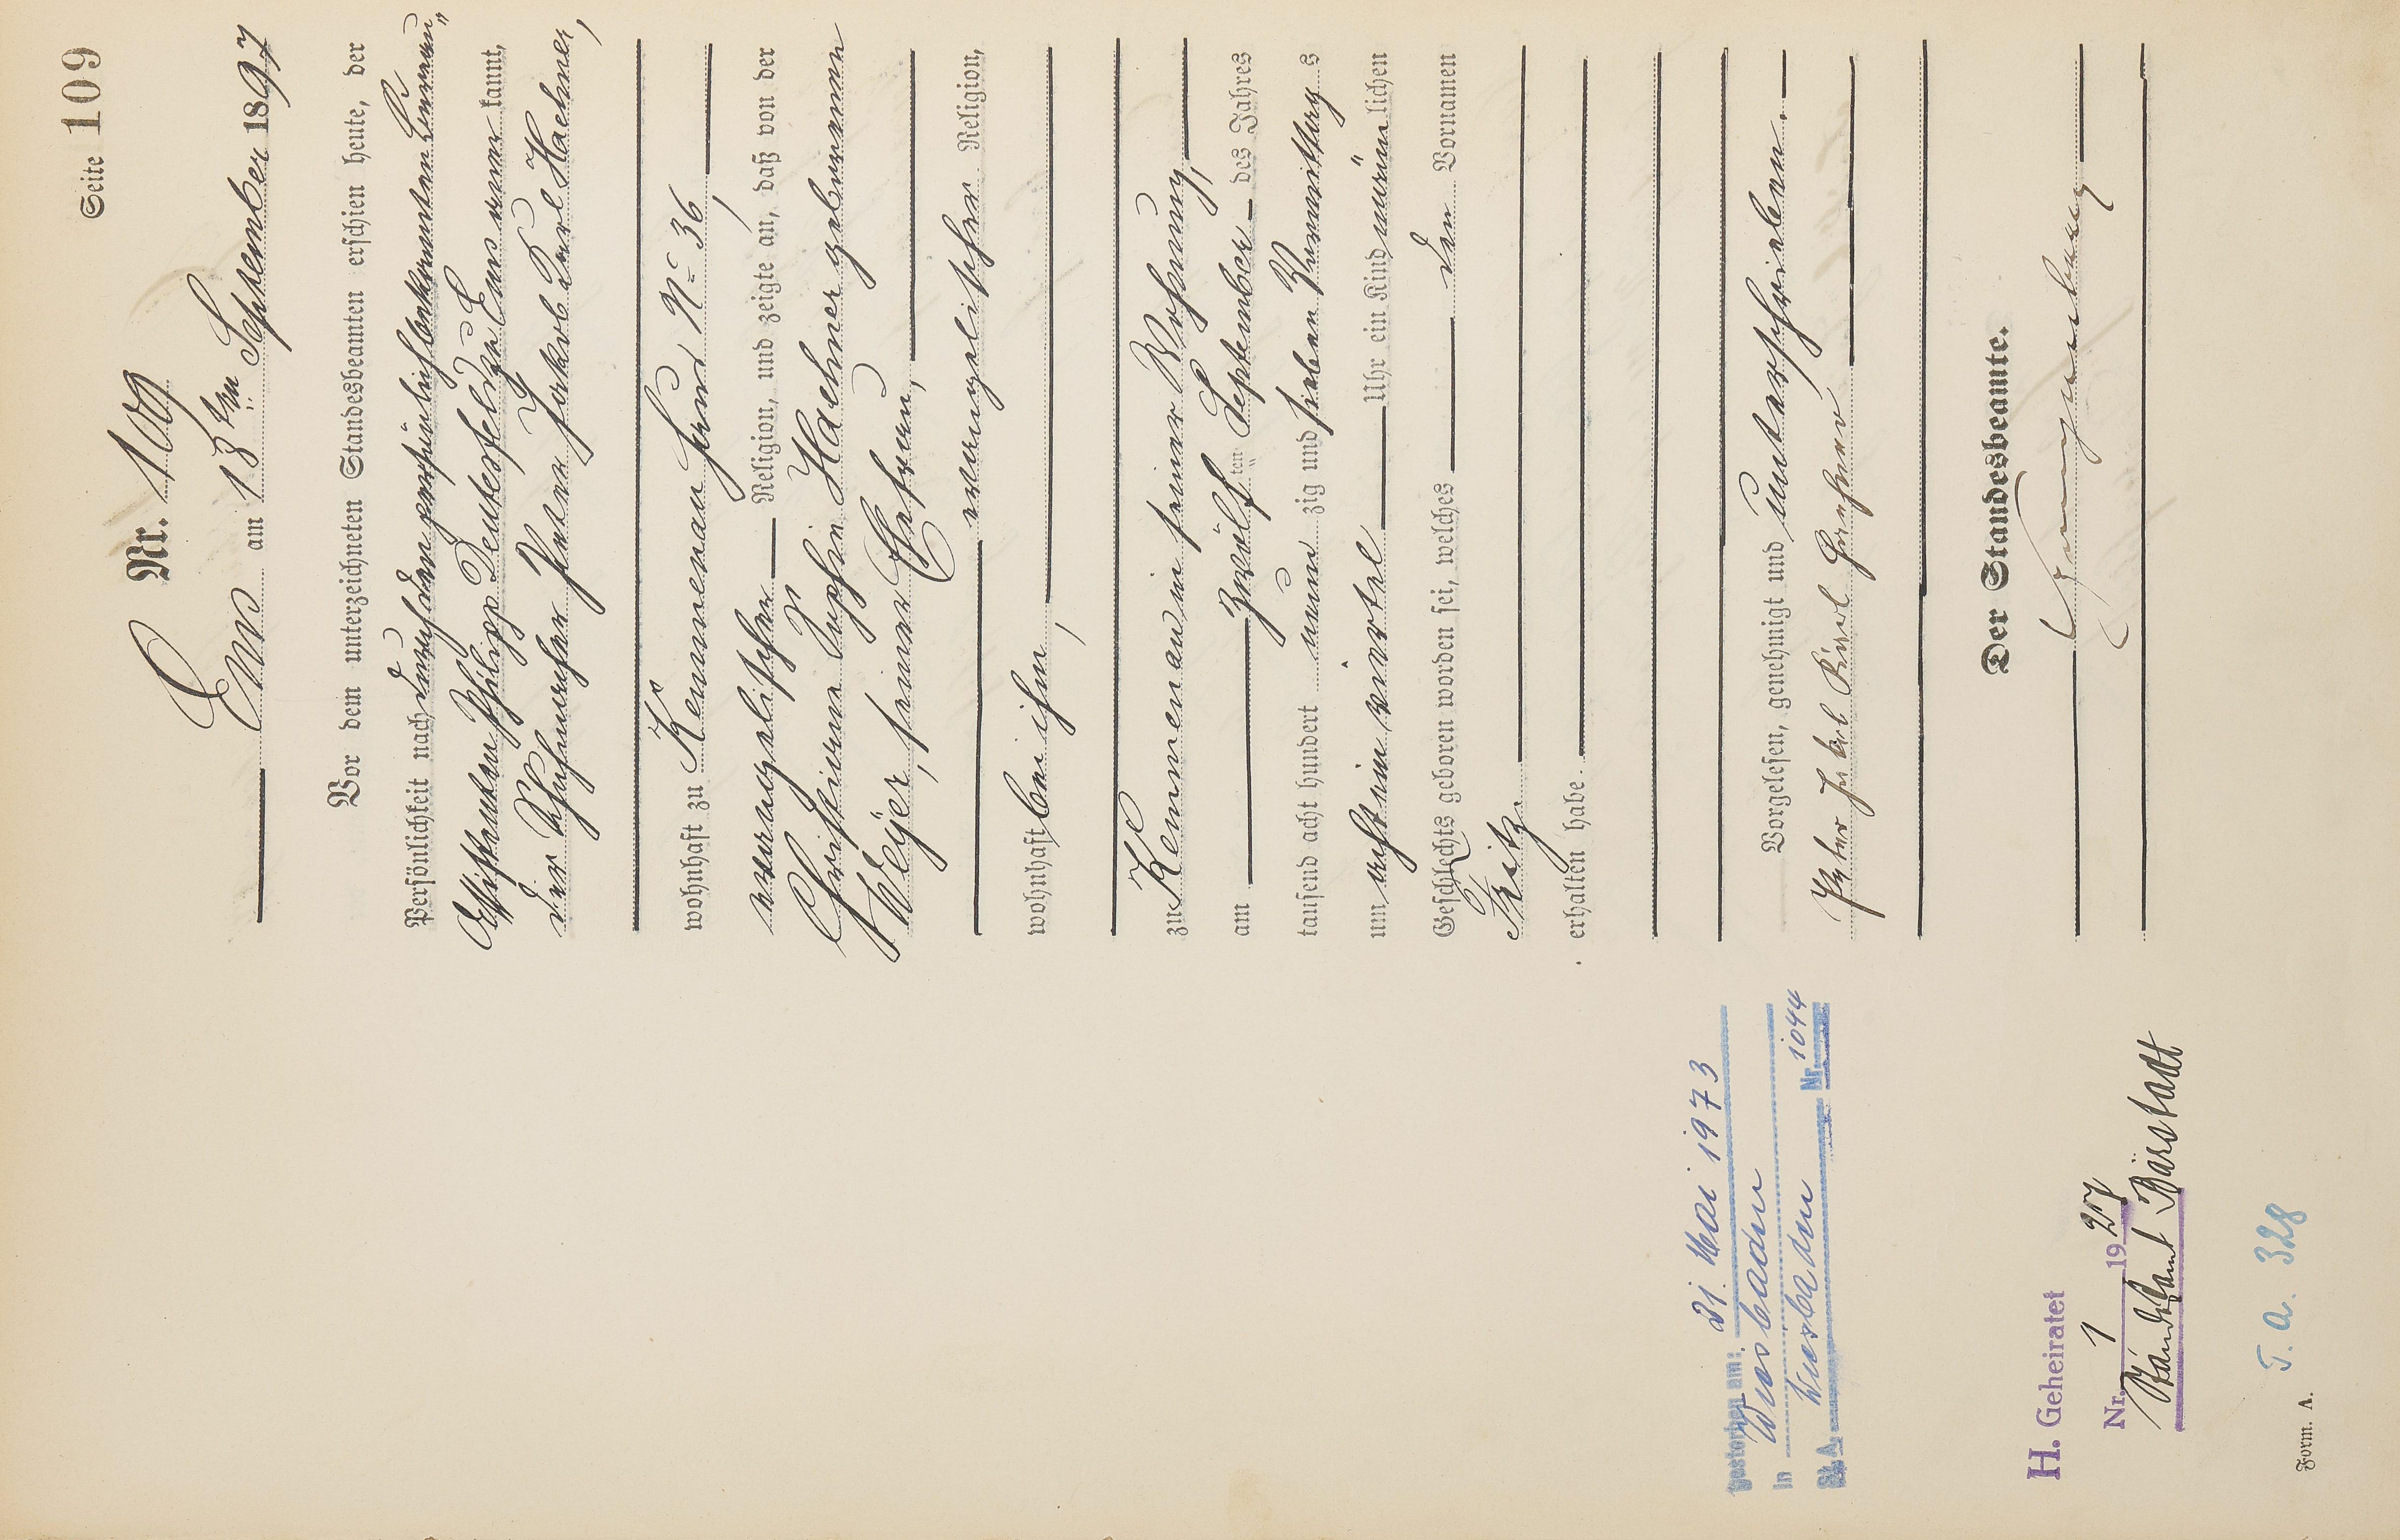 Seite 109
Nr. 109
Ems am 13ten September 1897
Vor dem unterzeichneten Standesbeamten erschien heute, der
Persönlichkeit nach durch den persönlich bekannten Bureau„
Assistenten Philipp Deutesfeld zu Ems aner kannt,
der Schuhmacher Peter Jakob Karl Haehner,
wohnhaft zu Kemmenau Haus No 36,
evangelischer Religion, und zeigte an, daß von der
Christiane Sophie Haehner geborenen
Weyer, seiner Ehefrau,
evangelischer Religion,
wohnhaft bei ihm,
zu Kemmenau in seiner Wohnung,
am zwölf ten September des Jahres
tausend acht hundert neun zig und sieben Vormittags
um acht ein viertel Uhr ein Kind männ lichen
Geschlechts geboren worden sei, welches den Vornamen
Fritz
erhalten habe.
Vorgelesen, genehmigt und unterschrieben.
Peter Jakob Karl Haehner
Der Standesbeamte.
gestorben am: 21. Mai 1973
in Wiesbaden
St. A. Wiesbaden Nr. 1044
H. Geheiratet
Nr. 1 1927
Standesamt Bärstadt
T. A. 328
Form. A.